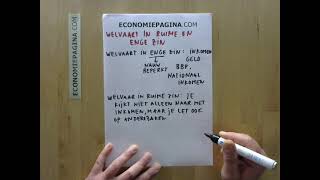 ECONOMIEPAGINA.COM
ECONOMIEPAGINA.COM
WELVAART IN RUIME EN
ENGE ZIN
WELVAART IN ENGE ZIN: INKOMEN
GELD
NAUW
BEPERKT
BBP,
NATIONAAL
INKOMEN
WELVAART IN RUIME ZIN: JE
KIJKT NIET ALLEEN NAAR HET
INKOMEN, MAAR JE LET OOK
OP ANDERE ZAKEN